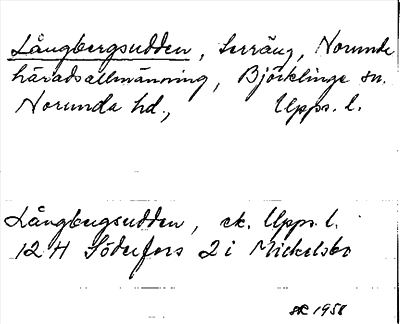 Långbergsudden, terräng, Norunda
häradsallmänning, Björklinge sn.
Norunda hd., Upps. l.
Långbergsudden, ek. Upps. l.
12 H Söderfors 2 i Mickelsbo
1958